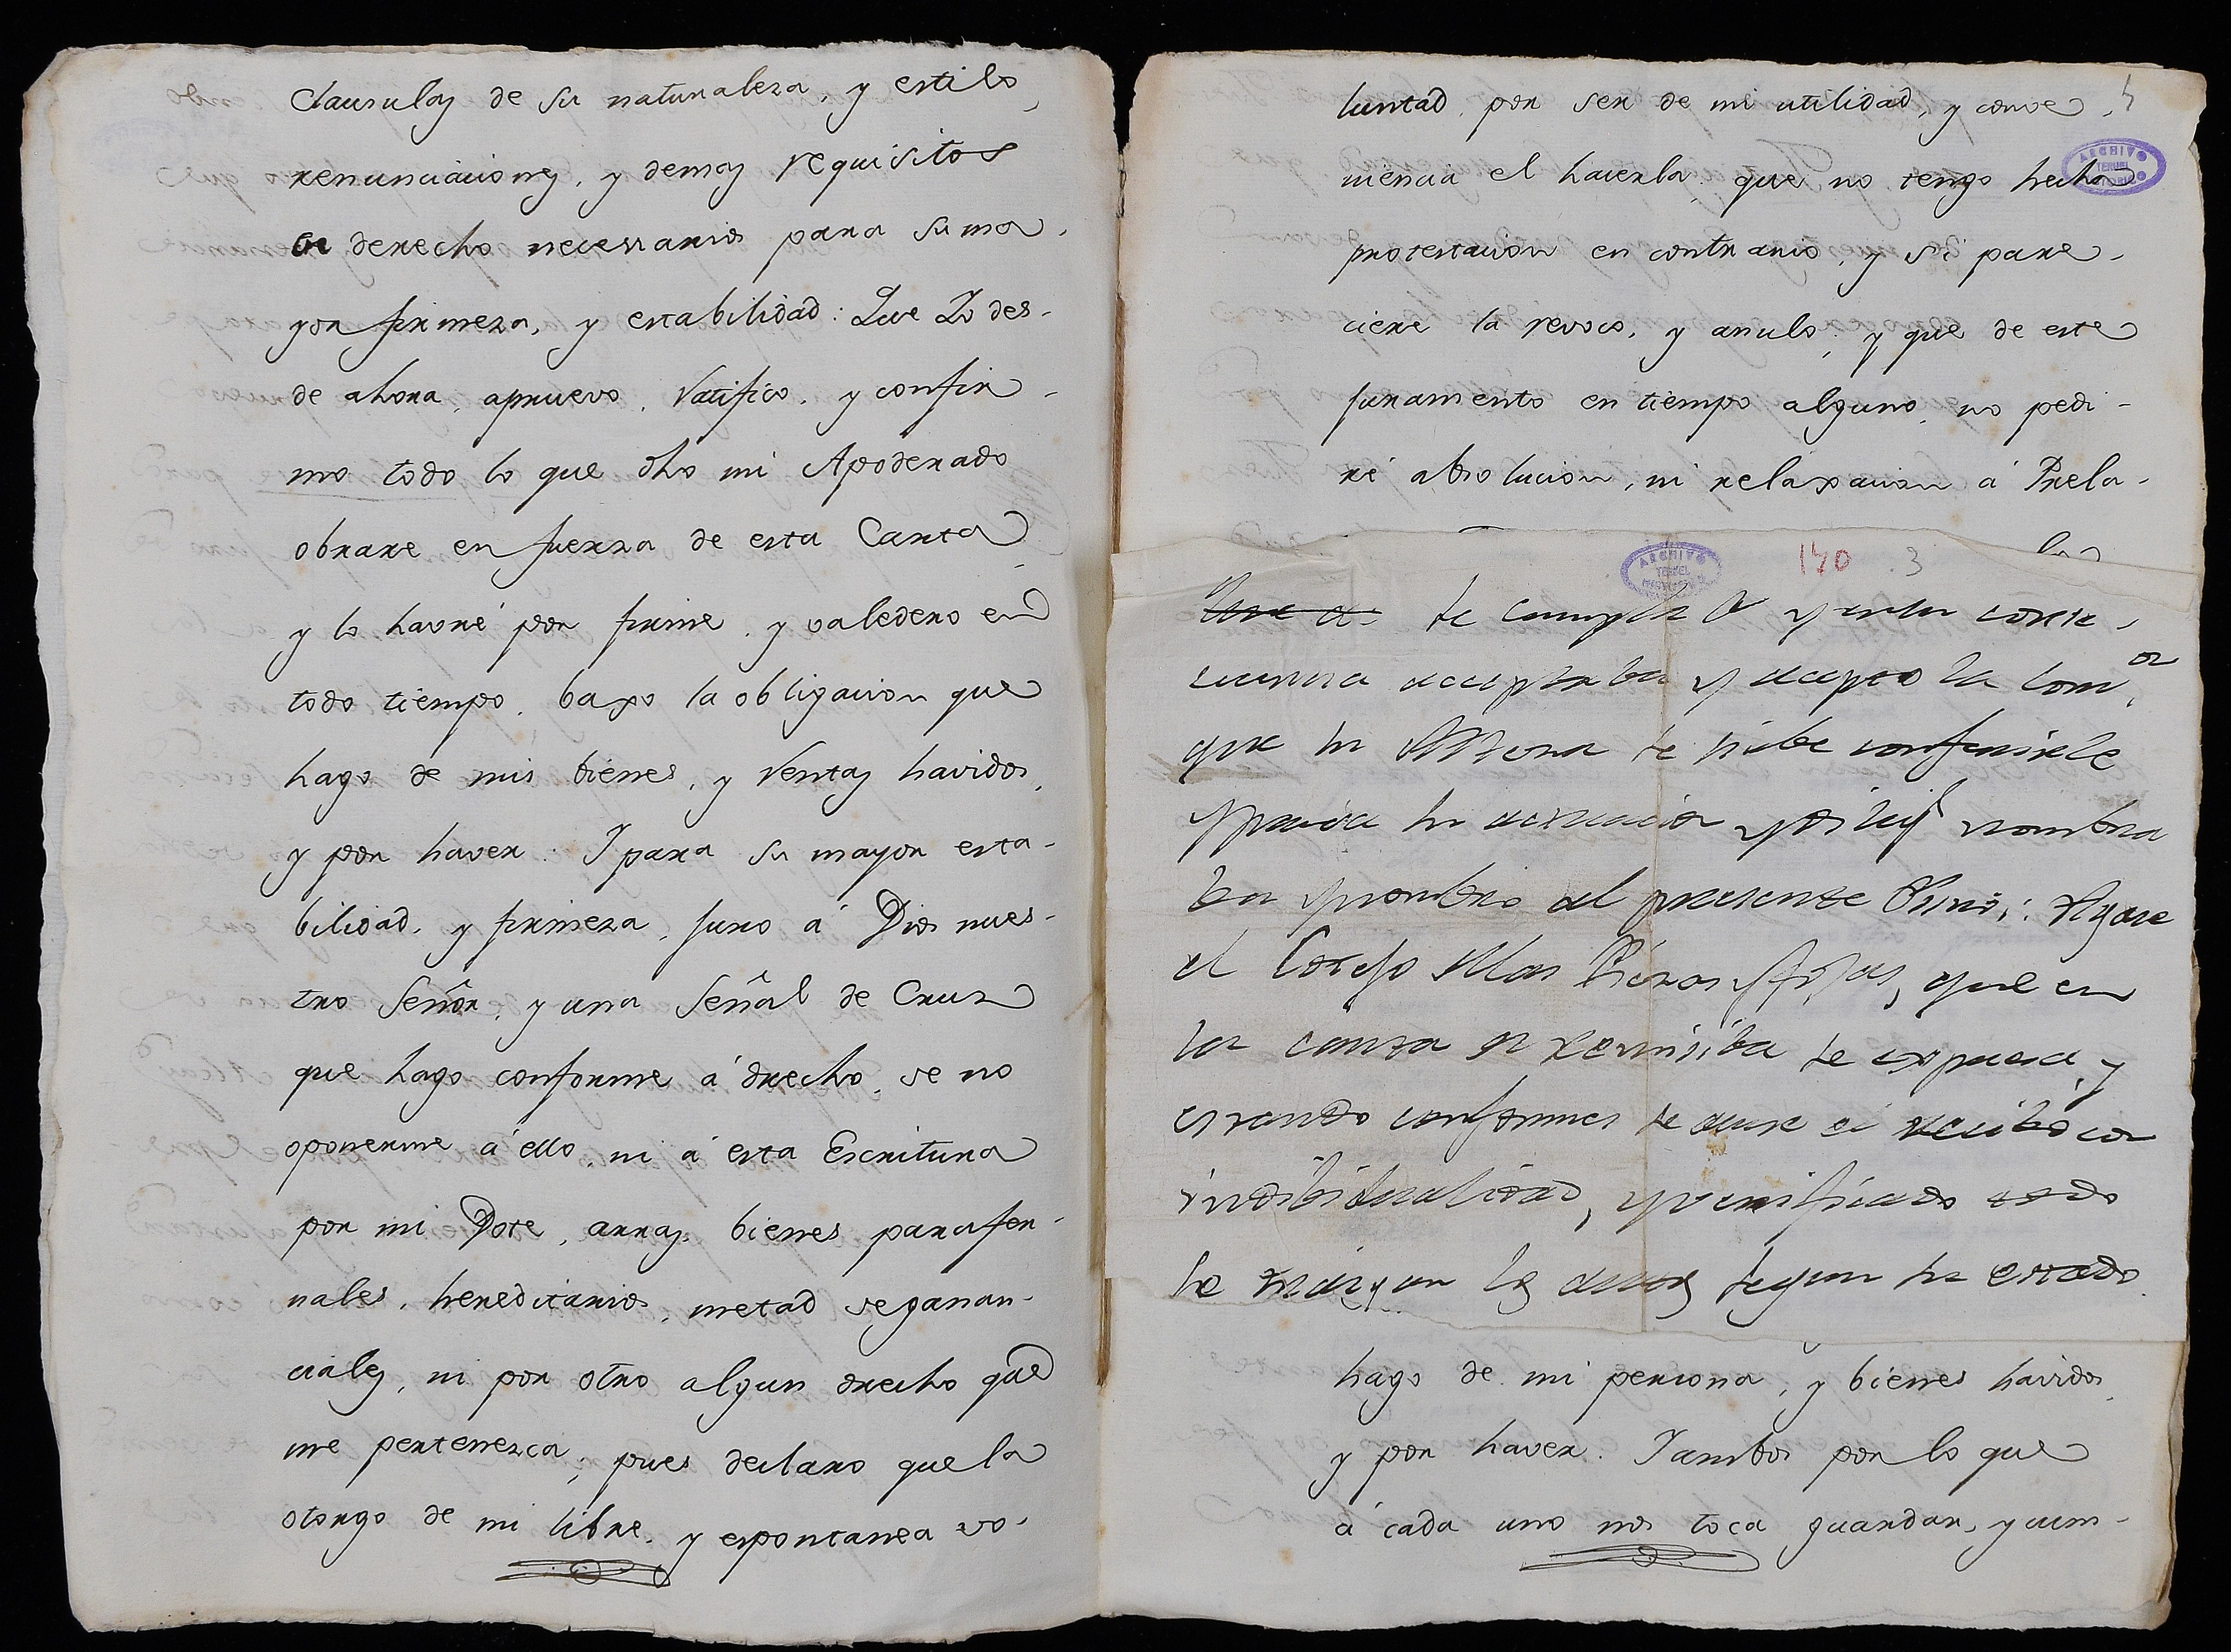 Clausulas de su naturaleza, y estilo,
renunciaciones, y demas requisitos
en derecho necessarios para su ma-
yor firmeza, y estabilidad: Que Yo des-
de ahora, apruevo, ratifico, y confir-
mo todo lo que dho mi Apoderado
obrare en fuerza de esta Carta
y lo havré por firme, y valedero en
todo tiempo, baxo la obligacion que
hago de mis bienes, y rentas havidos,
y por haver. Y para su mayor esta-
bilidad, y firmeza, juro á Dios nues-
tro Señor, y una Señal de Cruz
que hago conforme á drecho, de no
oponerme á ello, ni á esta Escritura
por mi Dote, arras, bienes parafer-
nales, hereditarios, metad de ganan-
ciales, ni por otro algun drecho que
me pertenezca; pues declaro que la
otorgo de mi libre, y espontanea vo-
luntad, por ser de mi utilidad, y conve-
niencia el hacerla: que no tengo hecha
protestacion en contrario, y si pare-
ciere la revoco, y anulo; y que de este
juramento en tiempo alguno, no pedi-
ré absolucion, ni relaxacion á Prela-
ARCHIVO
TERUEL
140 3
se cumpla y conse-
cuencia aceptaba y acepto la com.on
que su se sirbe conferirle
para su nombra
ba y nombro al presente Hagase
el Cotejo que en
la causa se expresa, y
estando conformes
indibidualidad, y verificado todo
se según su estado.
hago de mi persona, y bienes havidos,
y por haver. Y ambos por lo que
á cada uno nos toca guardar, y cum-